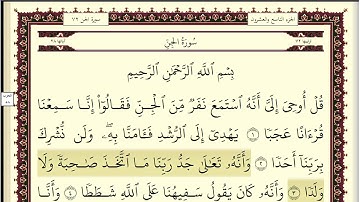 الجزء التاسع والعشرون
سورة الجن ٧٢
ترتيبها ٧٢
سُورَةُ الجِنِّ
آياتها ٢٨
بِسْمِ اللَّهِ الرَّحْمَٰنِ الرَّحِيمِ
قُلْ أُوحِىَ إِلَىَّ أَنَّهُ ٱسْتَمَعَ نَفَرٌ مِّنَ ٱلْجِنِّ فَقَالُوٓا۟ إِنَّا سَمِعْنَا
قُرْءَانًا عَجَبًا ١ يَهْدِىٓ إِلَى ٱلرُّشْدِ فَـَٔامَنَّا بِهِۦ ۖ وَلَن نُّشْرِكَ
بِرَبِّنَآ أَحَدًا ٢ وَأَنَّهُۥ تَعَـٰلَىٰ جَدُّ رَبِّنَا مَا ٱتَّخَذَ صَـٰحِبَةً وَلَا
وَلَدًا ٣ وَأَنَّهُۥ كَانَ يَقُولُ سَفِيهُنَا عَلَى ٱللَّهِ شَطَطًا ٤ وَأَنَّا